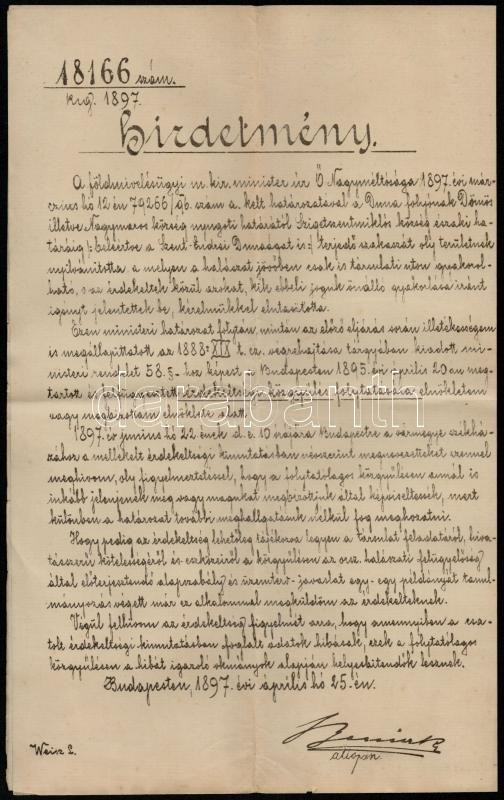 18166 szám.
kig. 1897.
Hirdetmény.
A földmivelésügyi m. kir. minister úr Ő Nagyméltósága 1897. évi már-
czius hó 12 én 79266/96. szám a. kelt határozatával a Duna folyónak Dömös
illetve Nagymaros község nyugoti határától Szigetszentmiklós község északi ha-
táráig /: beleértve a Szent Endrei Dunaágat is :/ terjedő szakaszát oly területnek
nyilvánitotta, a melyen a halászat jövőben csak is társulati uton gyakorol-
ható, s az érdekeltek közül azokat, kik ebbeli joguk önálló gyakorlása iránt
igényt jelentettek be, kérelmükkel elutasitotta.
Ezen ministeri határozat folytán, miután az előző eljárás során illetékességem
is megállapittatott az 1888: XIX t. cz. végrehajtása tárgyában kiadott mi-
nisteri rendelet 58. §-hoz képest Budapesten 1895. évi április 20 án meg-
tartott és felfüggesztett érdekeltségi közgyülés folytatására elnökletem
vagy megbizottam elnöklete alatt
1897. év junius hó 22. ének d. e. 10 órájára Budapestre a vármegye székhá-
zához a mellékelt érdekeltségi kimutatásban névszerint megnevezetteket ezennel
meghivom, oly figyelmeztetéssel, hogy a folytatólagos közgyülésen annál is
inkább jelenjenek meg vagy magukat megbizottjuk által képviseltessék, mert
különben a határozat további meghallgatásuk nélkül fog meghozatni.
Hogy pedig az érdekeltség lehetőleg tájékozva legyen a társulat feladatáról, hiva-
tásszerü kötelességéről és eszközeiről a közgyülésen az orsz. halászati felügyelőség
által előterjesztendő alapszabály és üzemterv-javaslat egy-egy példányát tanul-
mányozás végett már ez alkalommal megküldöm az érdekelteknek.
Végül felhivom az érdekeltség figyelmét arra, hogy amennyiben a csa-
tolt érdekeltségi kimutatásban foglalt adatok hibásak, ezek a folytatólagos
közgyülésen a hibát igazoló okmányok alapján helyesbitendők lesznek.
Budapesten, 1897. évi április hó 25.-én.
alispán.
Weisz L.
darabanth